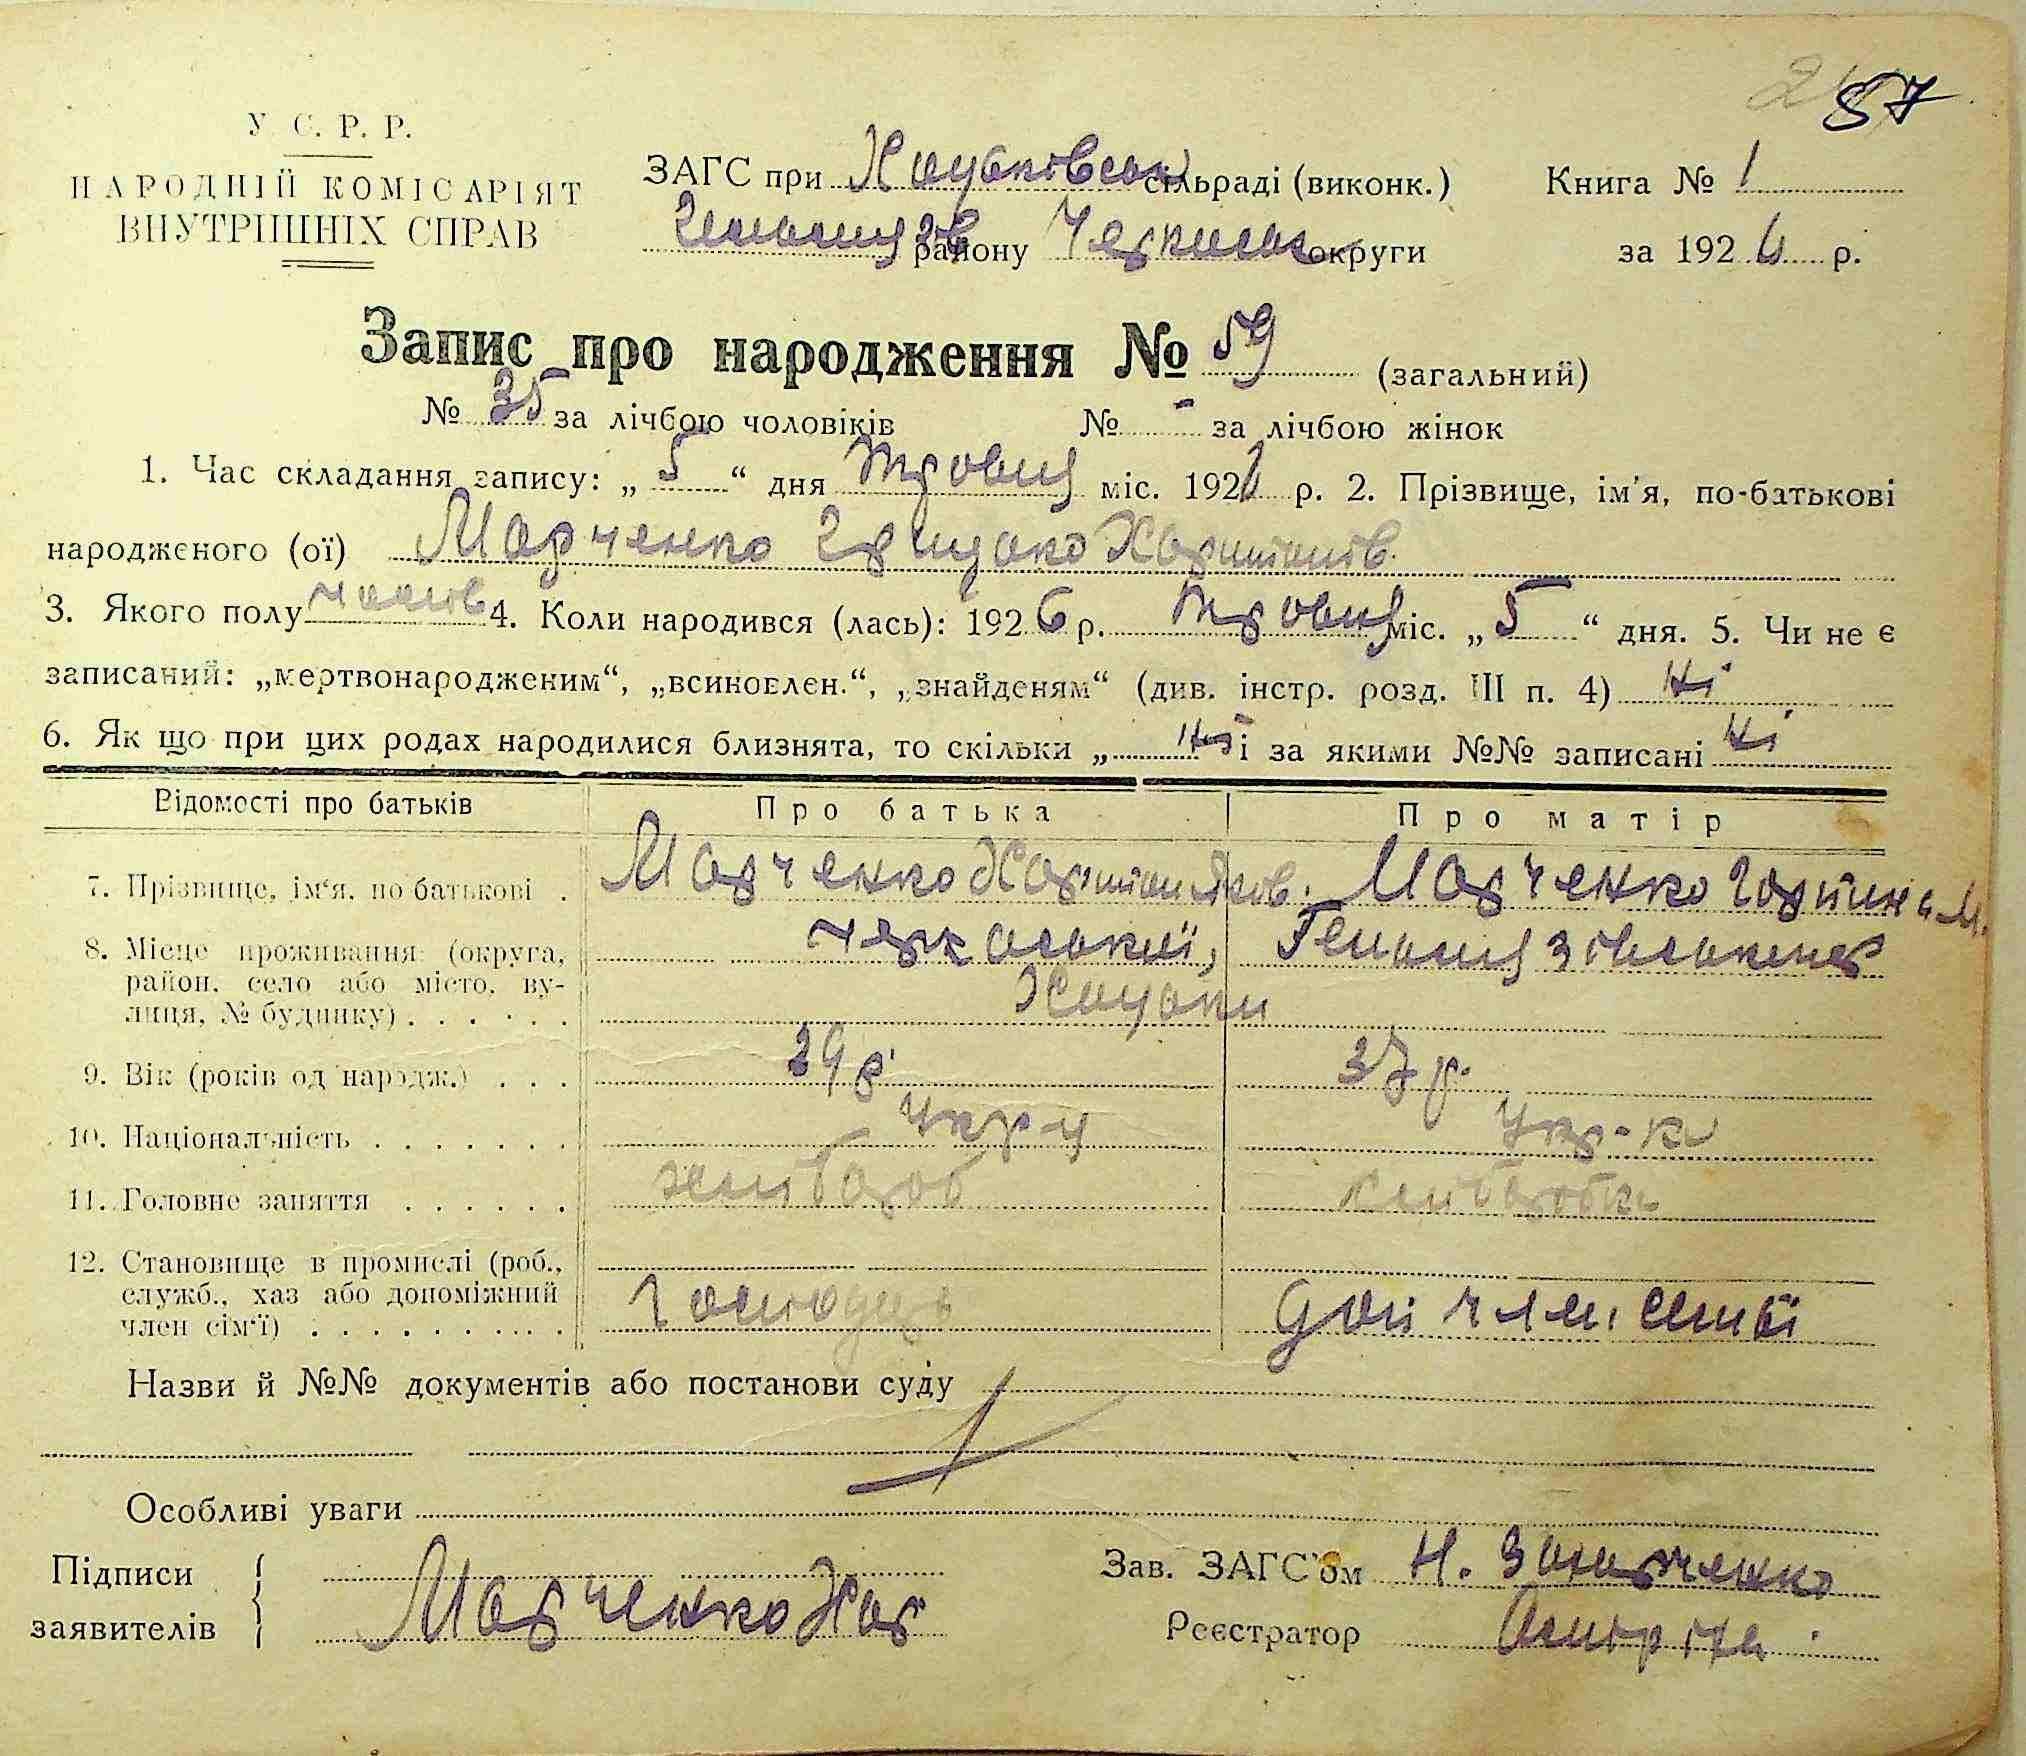 57
У С. Р. Р.
НАРОДНІЙ КОМІСАРІЯТ
ВНУТРІШНІХ СПРАВ
ЗАГС при Хацьківськ сільраді (виконк.) Книга № 1
району Черкаськ округи за 1926 р.
Запис про народження № 59 (загальний)
№ 35 за лічбою чоловіків № - за лічбою жінок
1. Час складання запису: „ 5 “ дня травня міс. 1926 р. 2. Прізвище, ім'я, по-батькові
народженого (ої) Марченко Грицько Харитонів
3. Якого полу чолов 4. Коли народився (лась): 1926 р. травня міс. „ 5 “ дня. 5. Чи не є
записаний: „мертвонародженим“, „всиновлєн.“, „знайденям“ (див. інстр. розд. III п. 4) ні
6. Як що при цих родах народилися близнята, то скільки „ ні і за якими №№ записані ні
Відомості про батьків Про батька Про матір
7. Прізвище, ім'я, по батькові . Марченко Харитон Яков. Марченко Горпина М.
8. Місце проживання (округа, черкаський,
район, село або місто, ву- Хацьки
лиця, № будинку) . . . . . .
9. Вік (років од народж.) . . . 39 р 37 р.
10. Національність . . . . . . . укр-ц укр-к
11. Головне заняття . . . . . . хлібороб хлібаробка
12. Становище в промислі (роб.,
служб., хаз або допоміжний господарь доп член сімї
член сім'ї) . . . . . . . . . .
Назви й №№ документів або постанови суду
Особливі уваги
Підписи Зав. ЗАГС'ом Н.
заявителів Марченко Хар Реєстратор